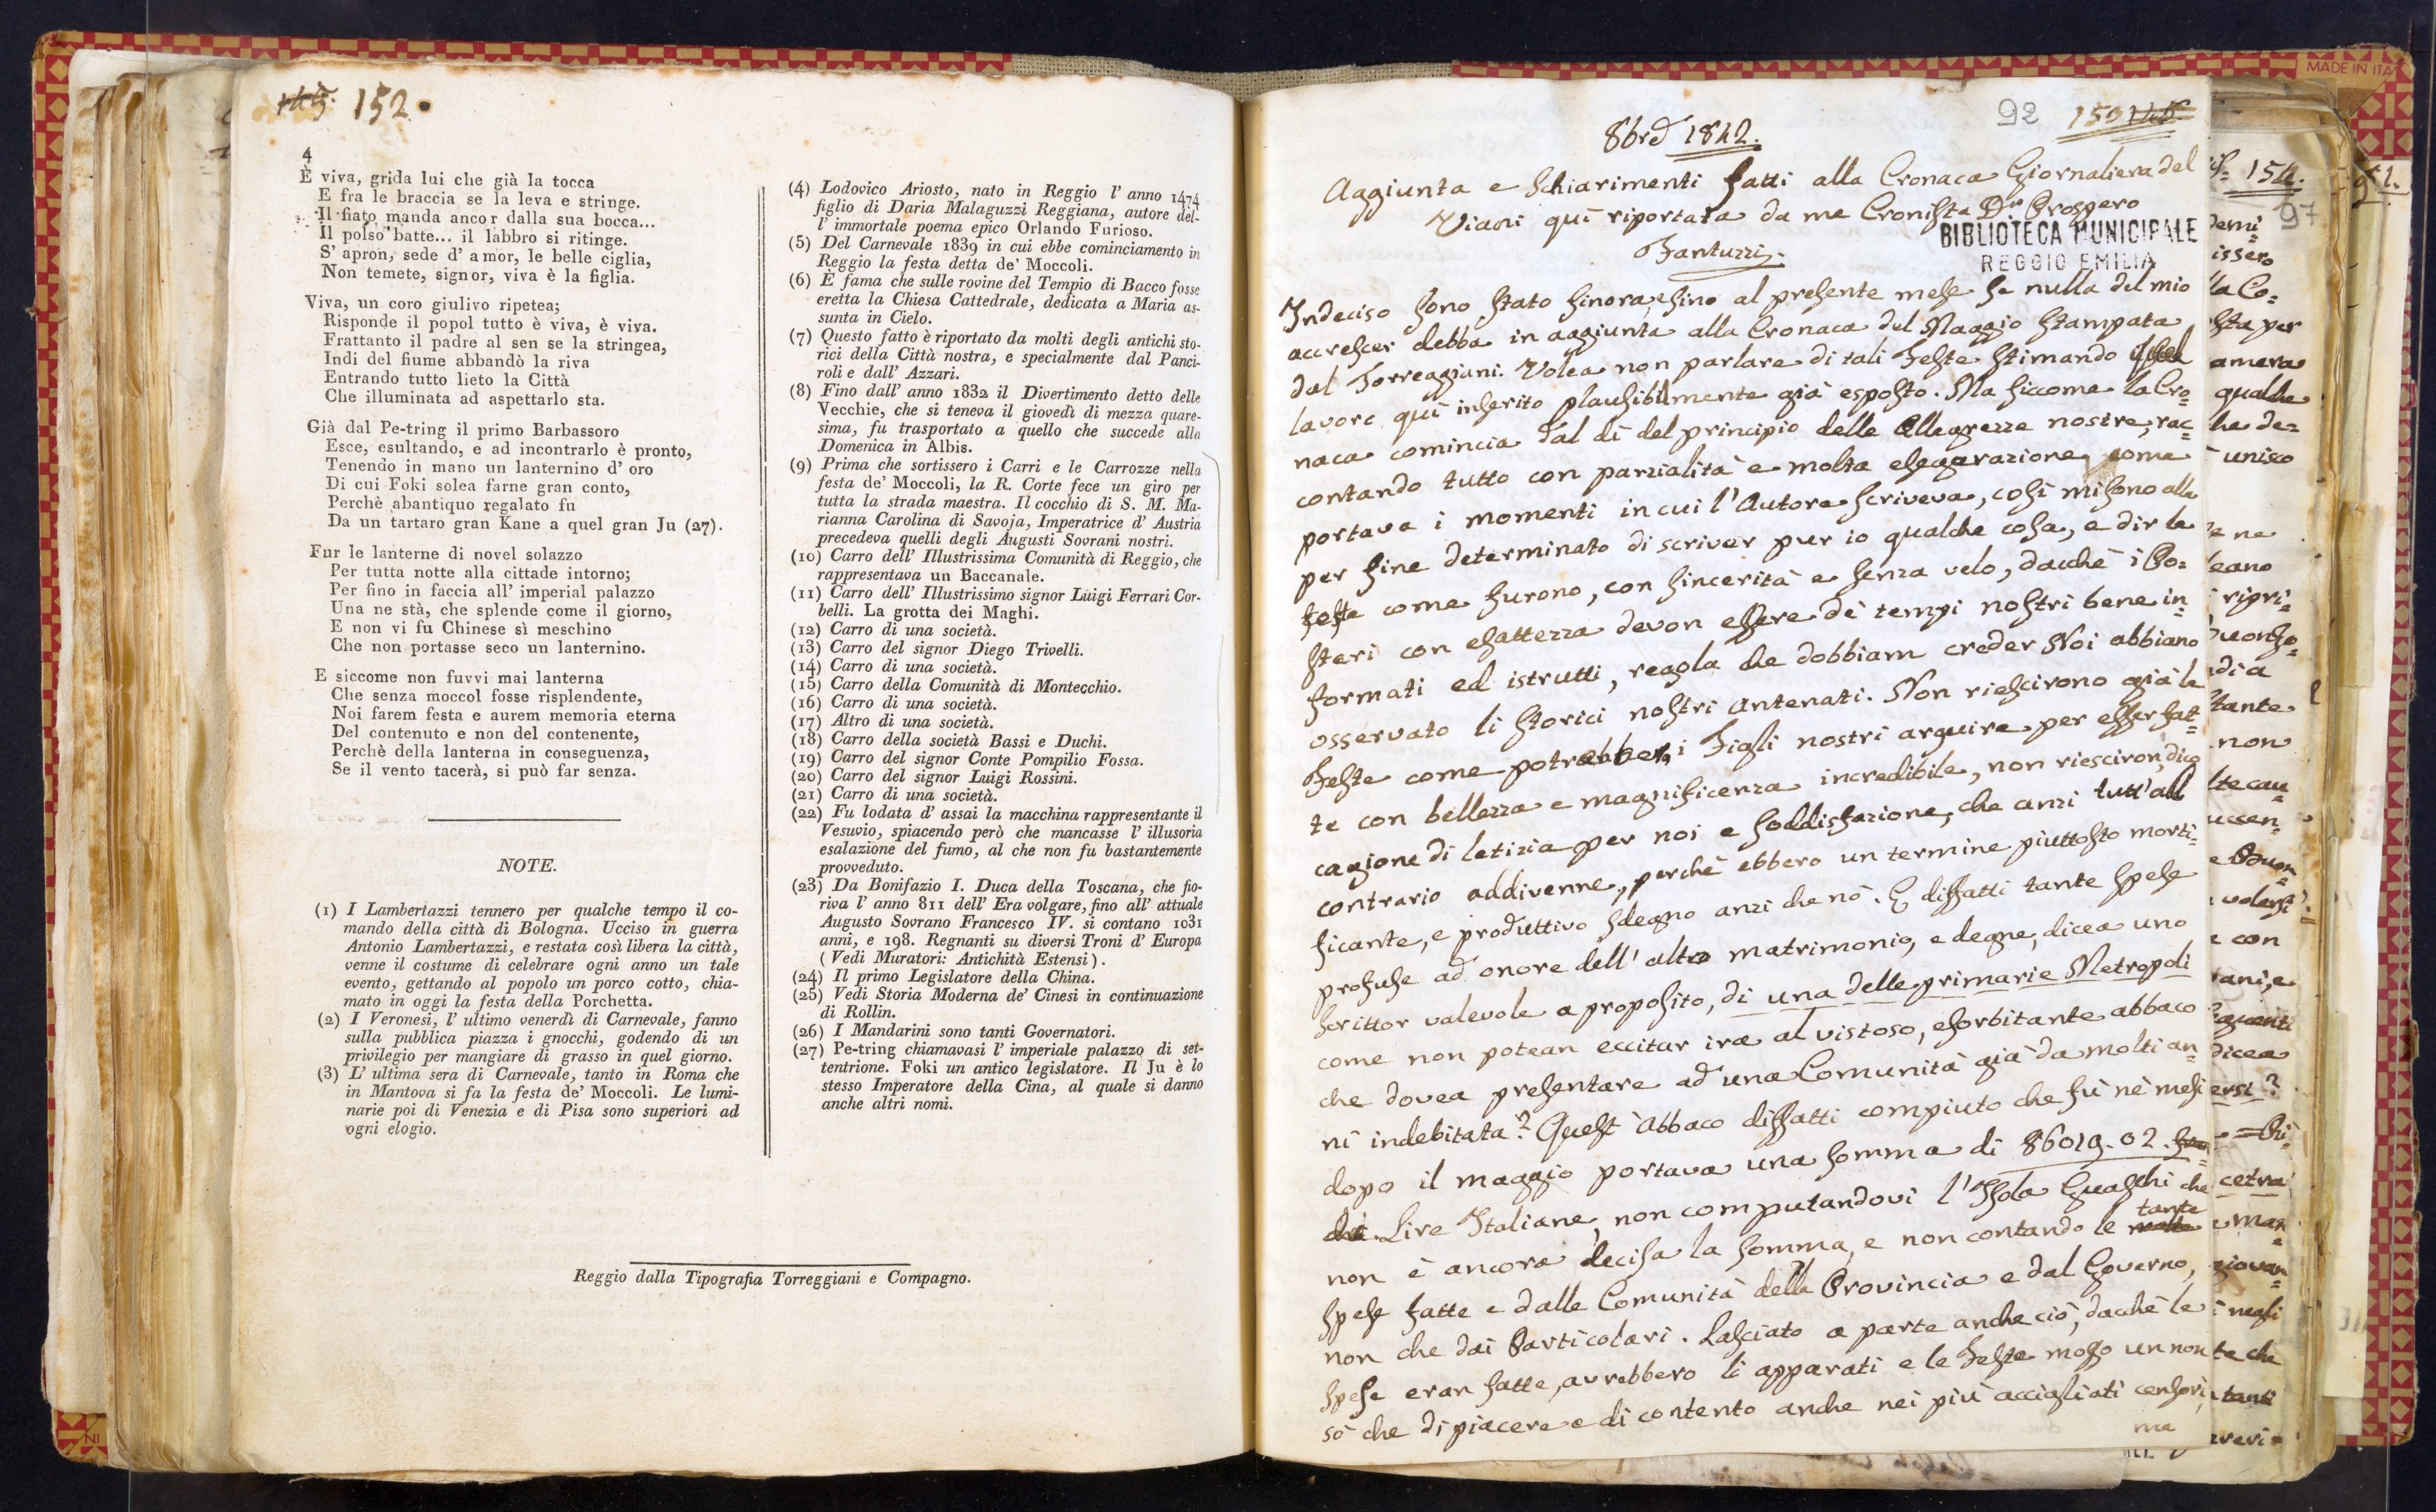 145. 152.
4
È viva, grida lui che già la tocca
E fra le braccia se la leva e stringe.
Il fiato manda ancor dalla sua bocca...
Il polso batte... il labbro si ritinge.
S' apron, sede d' amor, le belle ciglia,
Non temete, signor, viva è la figlia.
Viva, un coro giulivo ripetea;
Risponde il popol tutto è viva, è viva.
Frattanto il padre al sen se la stringea,
Indi del fiume abbandò la riva
Entrando tutto lieto la Città
Che illuminata ad aspettarlo sta.
Già dal Pe-tring il primo Barbassoro
Esce, esultando, e ad incontrarlo è pronto,
Tenendo in mano un lanternino d' oro
Di cui Foki solea farne gran conto,
Perchè abantiquo regalato fu
Da un tartaro gran Kane a quel gran Ju (27).
Fur le lanterne di novel solazzo
Per tutta notte alla cittade intorno;
Per fino in faccia all' imperial palazzo
Una ne stà, che splende come il giorno,
E non vi fu Chinese sì meschino
Che non portasse seco un lanternino.
E siccome non fuvvi mai lanterna
Che senza moccol fosse risplendente,
Noi farem festa e aurem memoria eterna
Del contenuto e non del contenente,
Perchè della lanterna in conseguenza,
Se il vento tacerà, si può far senza.
NOTE.
(1) I Lambertazzi tennero per qualche tempo il co-
mando della città di Bologna. Ucciso in guerra
Antonio Lambertazzi, e restata così libera la città,
venne il costume di celebrare ogni anno un tale
evento, gettando al popolo un porco cotto, chia-
mato in oggi la festa della Porchetta.
(2) I Veronesi, l' ultimo venerdì di Carnevale, fanno
sulla pubblica piazza i gnocchi, godendo di un
privilegio per mangiare di grasso in quel giorno.
(3) L' ultima sera di Carnevale, tanto in Roma che
in Mantova si fa la festa de' Moccoli. Le lumi-
narie poi di Venezia e di Pisa sono superiori ad
ogni elogio.
(4) Lodovico Ariosto, nato in Reggio l' anno 1474
figlio di Daria Malaguzzi Reggiana, autore del-
l' immortale poema epico Orlando Furioso.
(5) Del Carnevale 1839 in cui ebbe cominciamento in
Reggio la festa detta de' Moccoli.
(6) È fama che sulle rovine del Tempio di Bacco fosse
eretta la Chiesa Cattedrale, dedicata a Maria as-
sunta in Cielo.
(7) Questo fatto è riportato da molti degli antichi sto-
rici della Città nostra, e specialmente dal Panci-
roli e dall' Azzari.
(8) Fino dall' anno 1832 il Divertimento detto delle
Vecchie, che si teneva il giovedì di mezza quare-
sima, fu trasportato a quello che succede alla
Domenica in Albis.
(9) Prima che sortissero i Carri e le Carrozze nella
festa de' Moccoli, la R. Corte fece un giro per
tutta la strada maestra. Il cocchio di S. M. Ma-
rianna Carolina di Savoja, Imperatrice d' Austria
precedeva quelli degli Augusti Sovrani nostri.
(10) Carro dell' Illustrissima Comunità di Reggio, che
rappresentava un Baccanale.
(11) Carro dell' Illustrissimo signor Luigi Ferrari Cor-
belli. La grotta dei Maghi.
(12) Carro di una società.
(13) Carro del signor Diego Trivelli.
(14) Carro di una società.
(15) Carro della Comunità di Montecchio.
(16) Carro di una società.
(17) Altro di una società.
(18) Carro della società Bassi e Duchi.
(19) Carro del signor Conte Pompilio Fossa.
(20) Carro del signor Luigi Rossini.
(21) Carro di una società.
(22) Fu lodata d' assai la macchina rappresentante il
Vesuvio, spiacendo però che mancasse l' illusoria
esalazione del fumo, al che non fu bastantemente
provveduto.
(23) Da Bonifazio I. Duca della Toscana, che fio-
riva l' anno 811 dell' Era volgare, fino all' attuale
Augusto Sovrano Francesco IV. si contano 1031
anni, e 198. Regnanti su diversi Troni d' Europa
(Vedi Muratori: Antichità Estensi).
(24) Il primo Legislatore della China.
(25) Vedi Storia Moderna de' Cinesi in continuazione
di Rollin.
(26) I Mandarini sono tanti Governatori.
(27) Pe-tring chiamavasi l' imperiale palazzo di set-
tentrione. Foki un antico legislatore. Il Ju è lo
stesso Imperatore della Cina, al quale si danno
anche altri nomi.
Reggio dalla Tipografia Torreggiani e Compagno.
92
8bre 1842.
Aggiunta e Schiarimenti fatti alla Cronaca Giornaliera del
Viani quì riportata da me Cronista Dr Prospero
Fantuzzi.
BIBLIOTECA MUNICIPALE
REGGIO EMILIA
Indeciso sono stato finora, e fino al presente mese se nulla del mio
accrescer debba in aggiunta alla Cronaca del Maggio stampata
dal Torreggiani. Volea non parlare di tali Feste stimando quel
lavoro quì inserito plausibilmente già esposto. Ma siccome la Cro=
naca comincia dal dì del principio delle Allegrezze nostre, rac=
contando tutto con parzialità e molta esagerazione, come
portava i momenti in cui l'Autore scriveva, così mi sono alla
per fine determinato di scriver pur io qualche cosa, e dir le
feste come furono, con sincerità e senza velo, dacchè i Po=
steri con esattezza devon essere dè tempi nostri bene in=
formati ed istrutti, regola che dobbiam creder Noi abbiano
osservato li storici nostri Antenati. Non riescirono già le
Feste come potrebber i Figli nostri arguire per esser fat=
te con bellezza e magnificenza incredibile, non riesciron, dico
cagione di letizia per noi e soddisfazione, che anzi tutt'all
contrario addivenne, perchè ebbero un termine piuttosto morti=
ficante, e produttivo sdegno anzi che nò. E diffatti tante spese
profuse ad onore dell'altro matrimonio, e degne, dicea uno
scrittor valevole a proposito, di una delle primarie Metropoli
come non potean eccitar ira al vistoso, esorbitante abbaco
che dovea presentare ad una Comunità già da molti an=
ni indebitata? Quest'Abbaco diffatti compiuto che fù nè mesi
dopo il maggio portava una somma di 86019.02.
Lire Italiane, non computandovi l'Isola Guaschi che
non è ancora decisa la somma, e non contando le tante
spese fatte e dalle Comunità della Provincia e dal Governo,
non che dai Particolari. Lasciato a parte anche ciò, dacchè le
spese eran fatte, avrebbero li apparati e le Feste mosso un non
sò che di piacere e di contento anche nei più accigliati censori,
ma
154.
97
issero
la Co=
sta per
amera
qualche
he de=
unisco
e ne
ripri=
tante
non
con
dicea
ersi?
cetra
negli
te che
tanti
MADE IN ITA